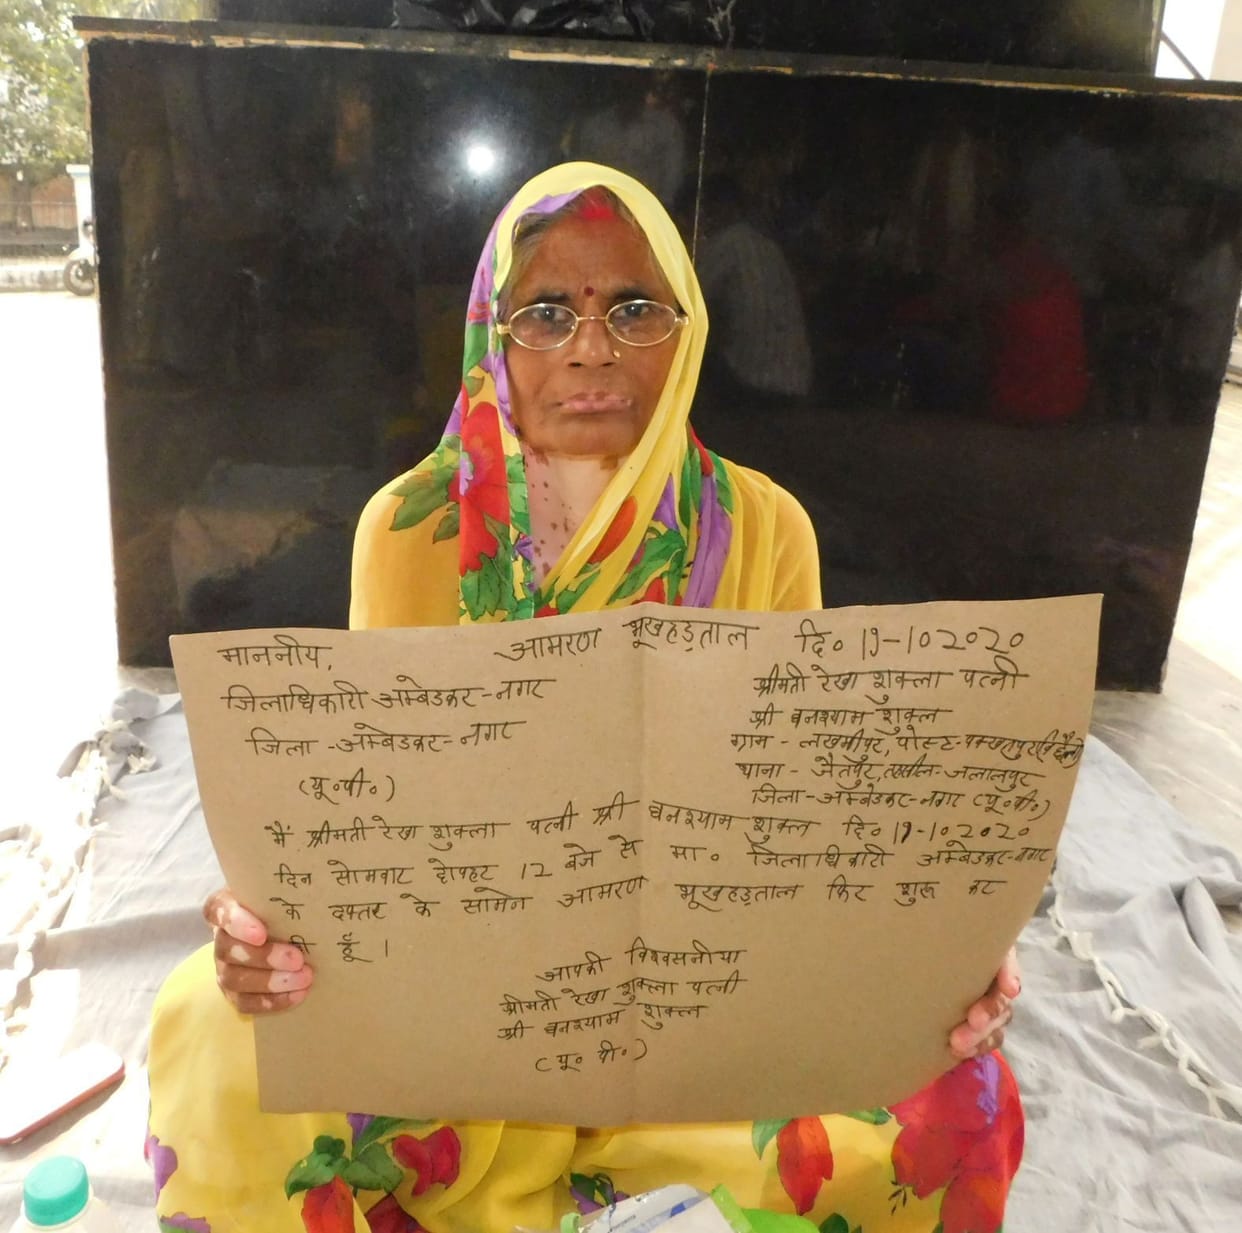 आमरण भूखहड़ताल दि० 19-10 2020
माननीय,
जिलाधिकारी अम्बेडकर-नगर
जिला -अम्बेडकर-नगर
(यू०पी०)
श्रीमती रेखा शुक्ला पत्नी
श्री घनश्याम शुक्ल
ग्राम - लखमीपुर, पोस्ट-
थाना - जैतपुर, तहसील-जलालपुर
जिला-अम्बेडकर-नगर (यू०पी०)
मैं श्रीमती रेखा शुक्ला पत्नी श्री घनश्याम शुक्ल दि० 19-10 2020
दिन सोमवार दोपहर 12 बजे से मा० जिलाधिकारी अम्बेडकर-नगर
के दफ्तर के सामने आमरण भूखहड़ताल फिर शुरू कर
हूँ।
आपकी विश्वसनीया
श्रीमती रेखा शुक्ला पत्नी
श्री घनश्याम शुक्ल
(यू० पी०)